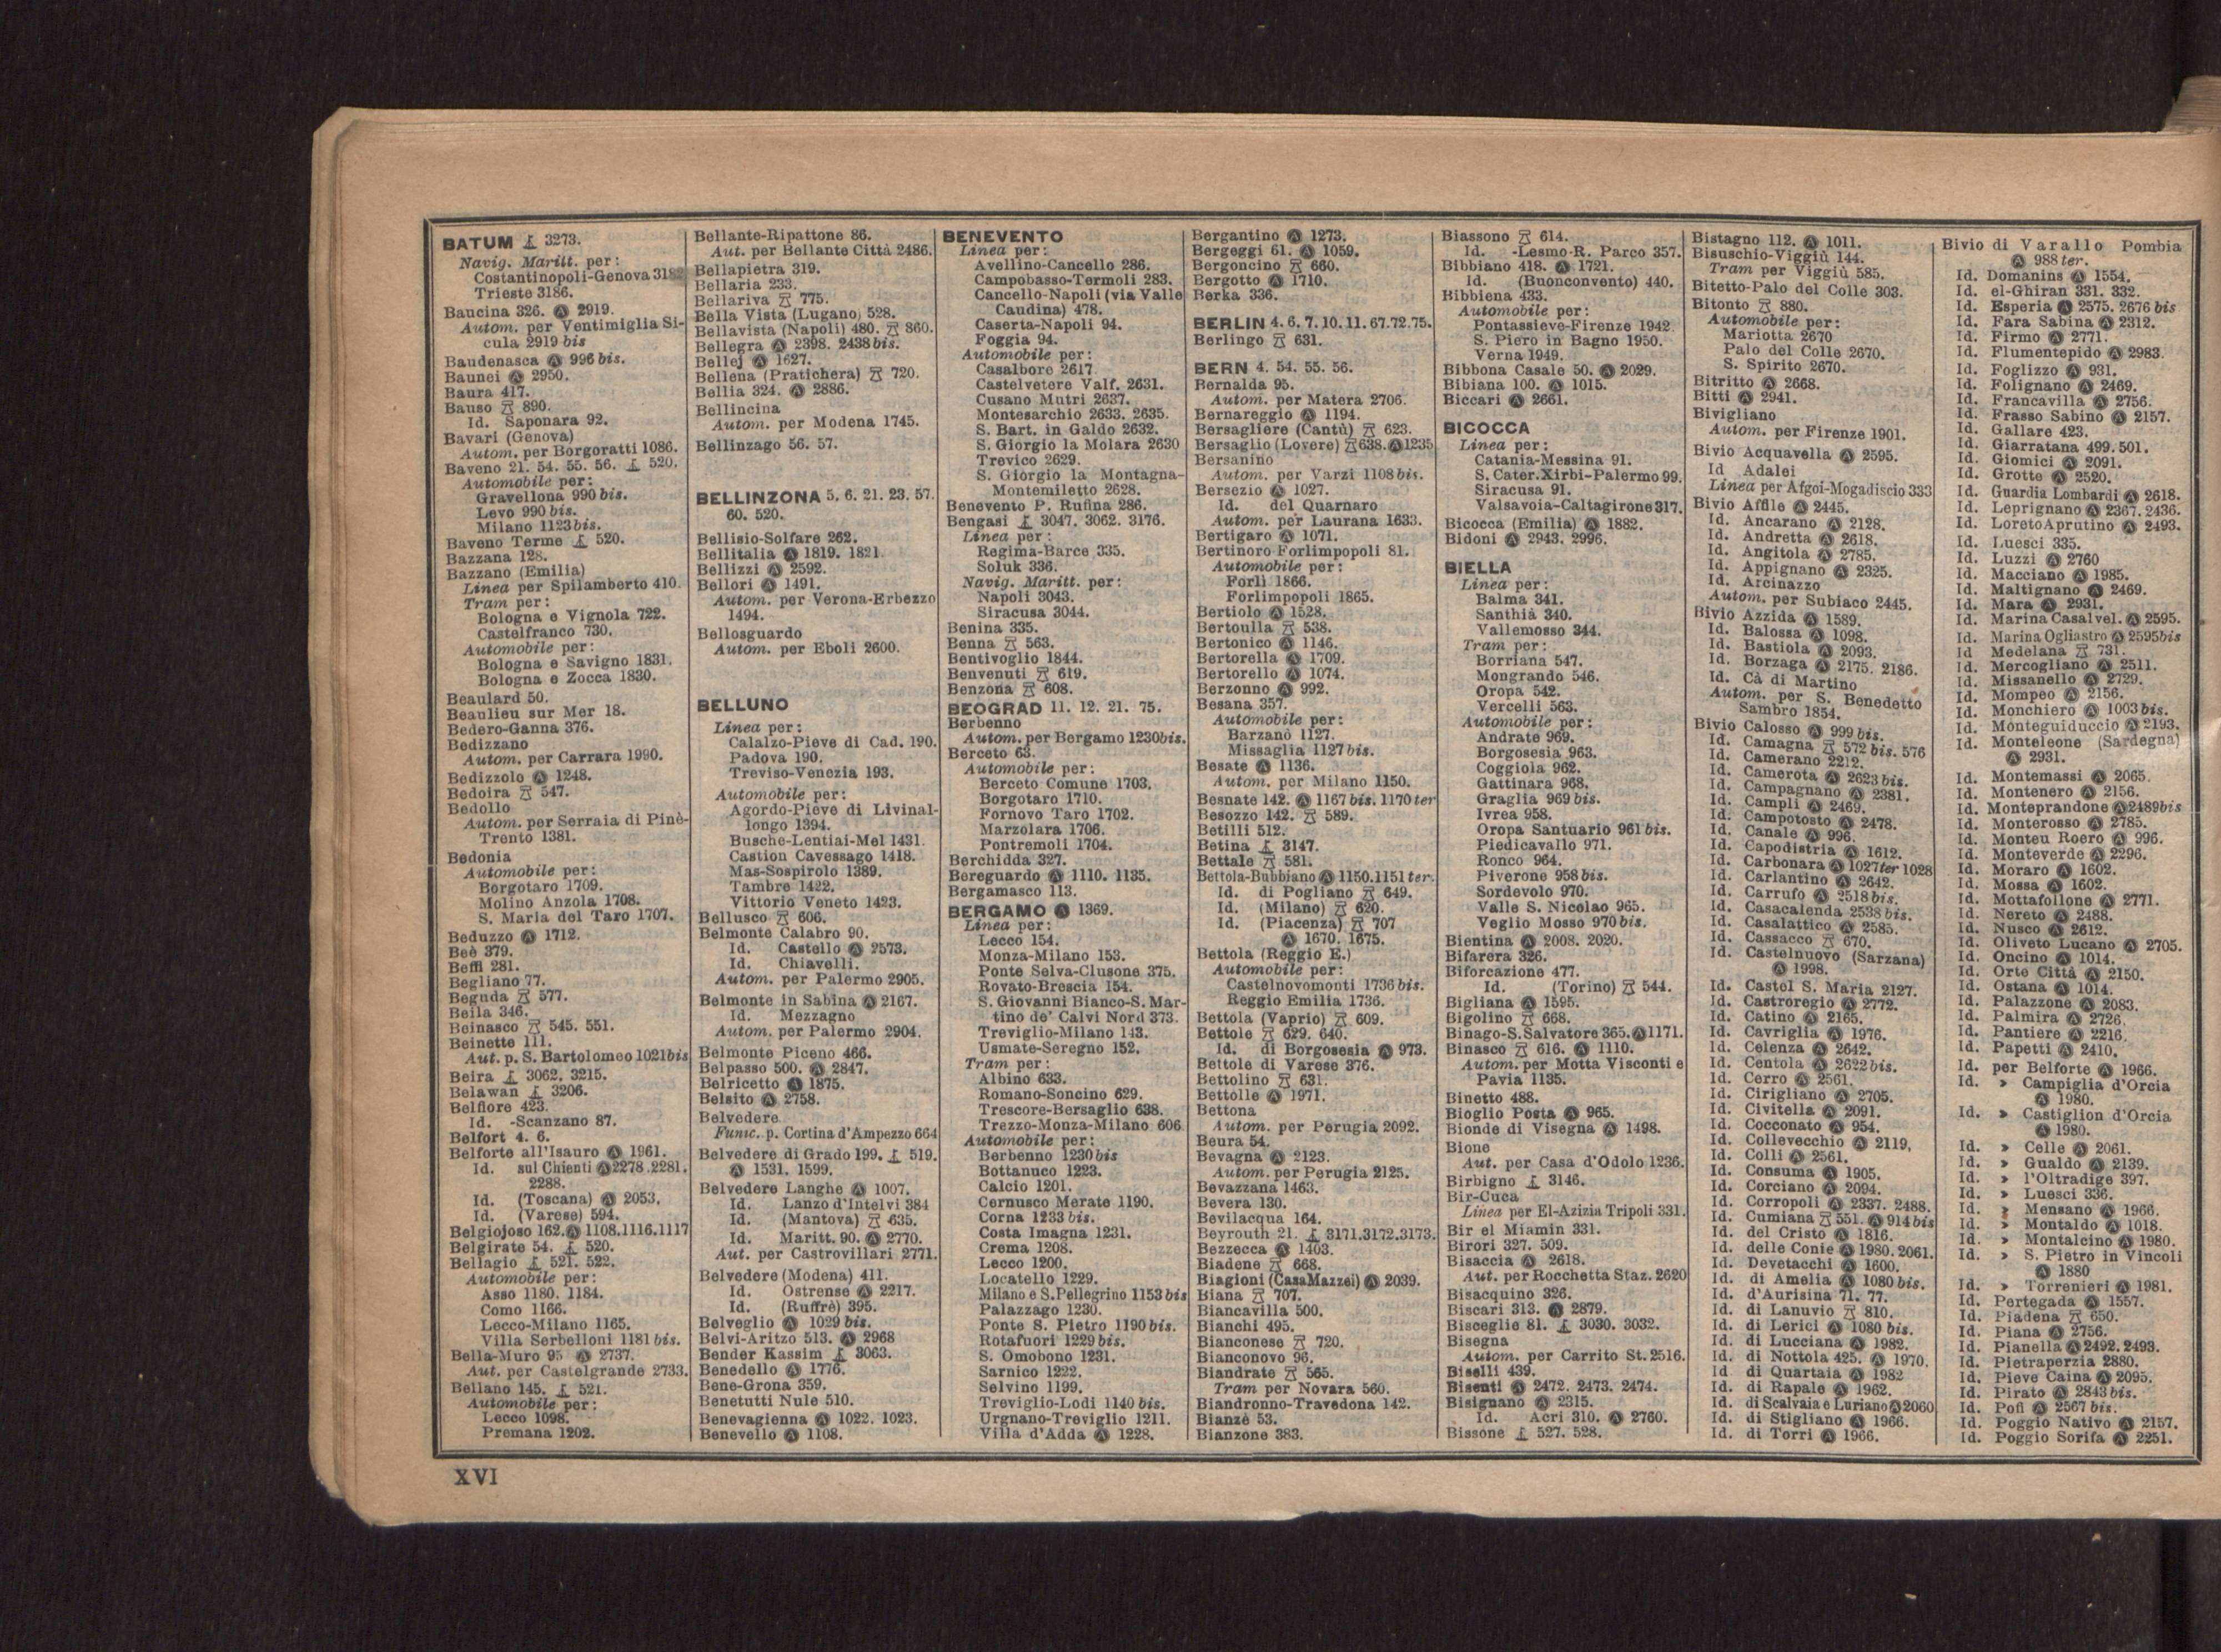 BATUM 3273.
Navig. Maritt. per:
Costantinopoli-Genova 3182
Trieste 3186.
Baucina 326. Ⓐ 2919.
Autom. per Ventimiglia Si-
cula 2919 bis
Baudenasca Ⓐ 996 bis.
Baunei Ⓐ 2950.
Baura 417.
Bauso 890.
Id. Saponara 92.
Bavari (Genova)
Autom. per Borgoratti 1086.
Baveno 21. 54. 55. 56. 520.
Automobile per:
Gravellona 990 bis.
Levo 990 bis.
Milano 1123 bis.
Baveno Terme 520.
Bazzana 128.
Bazzano (Emilia)
Linea per Spilamberto 410.
Tram per:
Bologna e Vignola 722.
Castelfranco 730.
Automobile per:
Bologna e Savigno 1831.
Bologna e Zocca 1830.
Beaulard 50.
Beaulieu sur Mer 18.
Bedero-Ganna 376.
Bedizzano
Autom. per Carrara 1990.
Bedizzolo Ⓐ 1248.
Bedoira 547.
Bedollo
Autom. per Serraia di Pinè-
Trento 1381.
Bedonia
Automobile per:
Borgotaro 1709.
Molino Anzola 1708.
S. Maria del Taro 1707.
Beduzzo Ⓐ 1712.
Beè 379.
Beffi 281.
Begliano 77.
Beguda 577.
Beila 346.
Beinasco 545. 551.
Beinette 111.
Aut. p. S. Bartolomeo 1021bis
Beira 3062. 3215.
Belawan 3206.
Belfiore 423.
Id. -Scanzano 87.
Belfort 4. 6.
Belforte all'Isauro Ⓐ 1961.
Id. sul Chienti Ⓐ 2278.2281.
2288.
Id. (Toscana) Ⓐ 2053.
Id. (Varese) 594.
Belgiojoso 162. Ⓐ 1108.1116.1117
Belgirate 54. 520.
Bellagio 521. 522.
Automobile per:
Asso 1180. 1184.
Como 1166.
Lecco-Milano 1165.
Villa Serbelloni 1181 bis.
Bella-Muro 95 Ⓐ 2737.
Aut. per Castelgrande 2733.
Bellano 145. 521.
Automobile per:
Lecco 1098.
Premana 1202.
Bellante-Ripattone 86.
Aut. per Bellante Città 2486.
Bellapietra 319.
Bellaria 233.
Bellariva 775.
Bella Vista (Lugano) 528.
Bellavista (Napoli) 480. 860.
Bellegra Ⓐ 2398. 2438 bis.
Bellej Ⓐ 1627.
Bellena (Pratichera) 720.
Bellia 324. Ⓐ 2886.
Bellincina
Autom. per Modena 1745.
Bellinzago 56. 57.
BELLINZONA 5. 6. 21. 23. 57.
60. 520.
Bellisio-Solfare 262.
Bellitalia Ⓐ 1819. 1821.
Bellizzi Ⓐ 2592.
Bellori Ⓐ 1491.
Autom. per Verona-Erbezzo
1494.
Bellosguardo
Autom. per Eboli 2600.
BELLUNO
Linea per:
Calalzo-Pieve di Cad. 190.
Padova 190.
Treviso-Venezia 193.
Automobile per:
Agordo-Pieve di Livinal-
longo 1394.
Busche-Lentiai-Mel 1431.
Castion Cavessago 1418.
Mas-Sospirolo 1389.
Tambre 1422.
Vittorio Veneto 1423.
Bellusco 606.
Belmonte Calabro 90.
Id. Castello Ⓐ 2573.
Id. Chiavelli.
Autom. per Palermo 2905.
Belmonte in Sabina Ⓐ 2167.
Id. Mezzagno
Autom. per Palermo 2904.
Belmonte Piceno 466.
Belpasso 500. Ⓐ 2847.
Belricetto Ⓐ 1875.
Belsito Ⓐ 2758.
Belvedere
Func. p. Cortina d'Ampezzo 664
Belvedere di Grado 199. 519.
Ⓐ 1531. 1599.
Belvedere Langhe Ⓐ 1007.
Id. Lanzo d'Intelvi 384
Id. (Mantova) 635.
Id. Maritt. 90. Ⓐ 2770.
Aut. per Castrovillari 2771.
Belvedere (Modena) 411.
Id. Ostrense Ⓐ 2217.
Id. (Ruffrè) 395.
Belveglio Ⓐ 1029 bis.
Belvi-Aritzo 513. Ⓐ 2968
Bender Kassim 3063.
Benedello Ⓐ 1776.
Bene-Grona 359.
Benetutti Nule 510.
Benevagienna Ⓐ 1022. 1023.
Benevello Ⓐ 1108.
BENEVENTO
Linea per:
Avellino-Cancello 286.
Campobasso-Termoli 283.
Cancello-Napoli (via Valle
Caudina) 478.
Caserta-Napoli 94.
Foggia 94.
Automobile per:
Casalbore 2617
Castelvetere Valf. 2631.
Cusano Mutri 2637.
Montesarchio 2633. 2635.
S. Bart. in Galdo 2632.
S. Giorgio la Molara 2630
Trevico 2629.
S. Giorgio la Montagna-
Montemiletto 2628.
Benevento P. Rufina 286.
Bengasi 3047. 3062. 3176.
Linea per:
Regima-Barce 335.
Soluk 336.
Navig. Maritt. per:
Napoli 3043.
Siracusa 3044.
Benina 335.
Benna 563.
Bentivoglio 1844.
Benvenuti 619.
Benzona 608.
BEOGRAD 11. 12. 21. 75.
Berbenno
Autom. per Bergamo 1230bis.
Berceto 63.
Automobile per:
Berceto Comune 1703.
Borgotaro 1710.
Fornovo Taro 1702.
Marzolara 1706.
Pontremoli 1704.
Berchidda 327.
Bereguardo Ⓐ 1110. 1135.
Bergamasco 113.
BERGAMO Ⓐ 1369.
Linea per:
Lecco 154.
Monza-Milano 153.
Ponte Selva-Clusone 375.
Rovato-Brescia 154.
S. Giovanni Bianco-S. Mar-
tino de' Calvi Nord 373.
Treviglio-Milano 143.
Usmate-Seregno 152.
Tram per:
Albino 633.
Romano-Soncino 629.
Trescore-Bersaglio 638.
Trezzo-Monza-Milano 606
Automobile per:
Berbenno 1230 bis
Bottanuco 1223.
Calcio 1201.
Cernusco Merate 1190.
Corna 1233 bis.
Costa Imagna 1231.
Crema 1208.
Lecco 1200.
Locatello 1229.
Milano e S.Pellegrino 1153 bis
Palazzago 1230.
Ponte S. Pietro 1190 bis.
Rotafuori 1229 bis.
S. Omobono 1231.
Sarnico 1222.
Selvino 1199.
Treviglio-Lodi 1140 bis.
Urgnano-Treviglio 1211.
Villa d'Adda Ⓐ 1228.
Bergantino Ⓐ 1273.
Bergeggi 61. Ⓐ 1059.
Bergoncino 660.
Bergotto Ⓐ 1710.
Berka 336.
BERLIN 4. 6. 7. 10. 11. 67. 72. 75.
Berlingo 631.
BERN 4. 54. 55. 56.
Bernalda 95.
Autom. per Matera 2706.
Bernareggio Ⓐ 1194.
Bersagliere (Cantù) 623.
Bersaglio (Lovere) 638. Ⓐ 1235
Bersanino
Autom. per Varzi 1108 bis.
Bersezio Ⓐ 1027.
Id. del Quarnaro
Autom. per Laurana 1633.
Bertigaro Ⓐ 1071.
Bertinoro Forlimpopoli 81.
Automobile per:
Forlì 1866.
Forlimpopoli 1865.
Bertiolo Ⓐ 1528.
Bertoulla 538.
Bertonico Ⓐ 1146.
Bertorella Ⓐ 1709.
Bertorello Ⓐ 1074.
Berzonno Ⓐ 992.
Besana 357.
Automobile per:
Barzanò 1127.
Missaglia 1127 bis.
Besate Ⓐ 1136.
Autom. per Milano 1150.
Besnate 142. Ⓐ 1167 bis. 1170 ter
Besozzo 142. 589.
Betilli 512.
Betina 3147.
Bettale 581.
Bettola-Bubbiano Ⓐ 1150.1151 ter.
Id. di Pogliano 649.
Id. (Milano) 620.
Id. (Piacenza) 707
Ⓐ 1670. 1675.
Bettola (Reggio E.)
Automobile per:
Castelnovomonti 1736 bis.
Reggio Emilia 1736.
Bettola (Vaprio) 609.
Bettole 629. 640.
Id. di Borgosesia Ⓐ 973.
Bettole di Varese 376.
Bettolino 631.
Bettolle Ⓐ 1971.
Bettona
Autom. per Perugia 2092.
Beura 54.
Bevagna Ⓐ 2123.
Autom. per Perugia 2125.
Bevazzana 1463.
Bevera 130.
Bevilacqua 164.
Beyrouth 21. 3171.3172.3173.
Bezzecca Ⓐ 1403.
Biadene 668.
Biagioni (CasaMazzei) Ⓐ 2039.
Biana 707.
Biancavilla 500.
Bianchi 495.
Bianconese 720.
Bianconovo 96.
Biandrate 565.
Tram per Novara 560.
Biandronno-Travedona 142.
Bianzè 53.
Bianzone 383.
Biassono 614.
Id. -Lesmo-R. Parco 357.
Bibbiano 418. Ⓐ 1721.
Id. (Buonconvento) 440.
Bibbiena 433.
Automobile per:
Pontassieve-Firenze 1942
S. Piero in Bagno 1950.
Verna 1949.
Bibbona Casale 50. Ⓐ 2029.
Bibiana 100. Ⓐ 1015.
Biccari Ⓐ 2661.
BICOCCA
Linea per:
Catania-Messina 91.
S. Cater.Xirbi-Palermo 99.
Siracusa 91.
Valsavoia-Caltagirone 317.
Bicocca (Emilia) Ⓐ 1882.
Bidoni Ⓐ 2943. 2996.
BIELLA
Linea per:
Balma 341.
Santhià 340.
Vallemosso 344.
Tram per:
Borriana 547.
Mongrando 546.
Oropa 542.
Vercelli 563.
Automobile per:
Andrate 969.
Borgosesia 963.
Coggiola 962.
Gattinara 968.
Graglia 969 bis.
Ivrea 958.
Oropa Santuario 961 bis.
Piedicavallo 971.
Ronco 964.
Piverone 958 bis.
Sordevolo 970.
Valle S. Nicolao 965.
Veglio Mosso 970 bis.
Bientina Ⓐ 2008. 2020.
Bifarera 326.
Biforcazione 477.
Id. (Torino) 544.
Bigliana Ⓐ 1595.
Bigolino 668.
Binago-S.Salvatore 365. Ⓐ 1171.
Binasco 616. Ⓐ 1110.
Autom. per Motta Visconti e
Pavia 1135.
Binetto 488.
Bioglio Posta Ⓐ 965.
Bionde di Visegna Ⓐ 1498.
Bione
Aut. per Casa d'Odolo 1236.
Birbigno 3146.
Bir-Cuca
Linea per El-Azizia Tripoli 331.
Bir el Miamin 331.
Birori 327. 509.
Bisaccia Ⓐ 2618.
Aut. per Rocchetta Staz. 2620
Bisacquino 326.
Biscari 313. Ⓐ 2879.
Bisceglie 81. 3030. 3032.
Bisegna
Autom. per Carrito St. 2516.
Biselli 439.
Bisenti Ⓐ 2472. 2473. 2474.
Bisignano Ⓐ 2315.
Id. Acri 310. Ⓐ 2760.
Bissone 527. 528.
Bistagno 112. Ⓐ 1011.
Bisuschio-Viggiù 144.
Tram per Viggiù 585.
Bitetto-Palo del Colle 303.
Bitonto 880.
Automobile per:
Mariotta 2670
Palo del Colle 2670.
S. Spirito 2670.
Bitritto Ⓐ 2668.
Bitti Ⓐ 2941.
Bivigliano
Autom. per Firenze 1901.
Bivio Acquavella Ⓐ 2595.
Id Adalei
Linea per Afgoi-Mogadiscio 333
Bivio Affile Ⓐ 2445.
Id. Ancarano Ⓐ 2128.
Id. Andretta Ⓐ 2618.
Id. Angitola Ⓐ 2785.
Id. Appignano Ⓐ 2325.
Id. Arcinazzo
Autom. per Subiaco 2445.
Bivio Azzida Ⓐ 1589.
Id. Balossa Ⓐ 1098.
Id. Bastiola Ⓐ 2093.
Id. Borzaga Ⓐ 2175. 2186.
Id. Cà di Martino
Autom. per S. Benedetto
Sambro 1854.
Bivio Calosso Ⓐ 999 bis.
Id. Camagna 572 bis. 576
Id. Camerano 2212.
Id. Camerota Ⓐ 2623 bis.
Id. Campagnano Ⓐ 2381.
Id. Campli Ⓐ 2469.
Id. Campotosto Ⓐ 2478.
Id. Canale Ⓐ 996.
Id. Capodistria Ⓐ 1612.
Id. Carbonara Ⓐ 1027ter 1028
Id. Carlantino Ⓐ 2642.
Id. Carrufo Ⓐ 2518 bis.
Id. Casacalenda 2538 bis.
Id. Casalattico Ⓐ 2585.
Id. Cassacco 670.
Id. Castelnuovo (Sarzana)
Ⓐ 1998.
Id. Castel S. Maria 2127.
Id. Castroregio Ⓐ 2772.
Id. Catino Ⓐ 2165.
Id. Cavriglia Ⓐ 1976.
Id. Celenza Ⓐ 2642.
Id. Centola Ⓐ 2622 bis.
Id. Cerro Ⓐ 2561.
Id. Cirigliano Ⓐ 2705.
Id. Civitella Ⓐ 2091.
Id. Cocconato Ⓐ 954.
Id. Collevecchio Ⓐ 2119.
Id. Colli Ⓐ 2561.
Id. Consuma Ⓐ 1905.
Id. Corciano Ⓐ 2094.
Id. Corropoli Ⓐ 2337. 2488.
Id. Cumiana 551. Ⓐ 914 bis
Id. del Cristo Ⓐ 1816.
Id. delle Conie Ⓐ 1980. 2061.
Id. Devetacchi Ⓐ 1600.
Id. di Amelia Ⓐ 1080 bis.
Id. d'Aurisina 71. 77.
Id. di Lanuvio 810.
Id. di Lerici Ⓐ 1080 bis.
Id. di Lucciana Ⓐ 1982.
Id. di Nottola 425. Ⓐ 1970.
Id di Quartaia Ⓐ 1982
Id. di Rapale Ⓐ 1962.
Id. di Scalvaia e Luriano Ⓐ 2060
Id. di Stigliano Ⓐ 1966.
Id. di Torri Ⓐ 1966.
Bivio di Varallo Pombia
Ⓐ 988 ter.
Id. Domanins Ⓐ 1554.
Id. el-Ghiran 331. 332.
Id. Esperia Ⓐ 2575. 2676 bis
Id. Fara Sabina Ⓐ 2312.
Id. Firmo Ⓐ 2771.
Id. Flumentepido Ⓐ 2983.
Id. Foglizzo Ⓐ 931.
Id. Folignano Ⓐ 2469.
Id. Francavilla Ⓐ 2756.
Id. Frasso Sabino Ⓐ 2157.
Id. Gallare 423.
Id. Giarratana 499. 501.
Id. Giomici Ⓐ 2091.
Id. Grotte Ⓐ 2520.
Id. Guardia Lombardi Ⓐ 2618.
Id. Leprignano Ⓐ 2367. 2436.
Id. Loreto Aprutino Ⓐ 2493.
Id. Luesci 335.
Id. Luzzi Ⓐ 2760
Id. Macciano Ⓐ 1985.
Id. Maltignano Ⓐ 2469.
Id. Mara Ⓐ 2931.
Id. Marina Casalvel. Ⓐ 2595.
Id. Marina Ogliastro Ⓐ 2595bis
Id Medelana 731.
Id. Mercogliano Ⓐ 2511.
Id. Missanello Ⓐ 2729.
Id. Mompeo Ⓐ 2156.
Id. Monchiero Ⓐ 1003 bis.
Id. Monteguiduccio Ⓐ 2193.
Id. Monteleone (Sardegna)
Ⓐ 2931.
Id. Montemassi Ⓐ 2065.
Id. Montenero Ⓐ 2156.
Id. Monteprandone Ⓐ 2489bis
Id. Monterosso Ⓐ 2785.
Id. Monteu Roero Ⓐ 996.
Id. Monteverde Ⓐ 2296.
Id. Moraro Ⓐ 1602.
Id. Mossa Ⓐ 1602.
Id. Mottafollone Ⓐ 2771.
Id. Nereto Ⓐ 2488.
Id. Nusco Ⓐ 2612.
Id. Oliveto Lucano Ⓐ 2705.
Id. Oncino Ⓐ 1014.
Id. Orte Città Ⓐ 2150.
Id. Ostana Ⓐ 1014.
Id. Palazzone Ⓐ 2083.
Id. Palmira Ⓐ 2726.
Id. Pantiere Ⓐ 2216.
Id. Papetti Ⓐ 2410.
Id. per Belforte Ⓐ 1966.
Id. » Campiglia d'Orcia
Ⓐ 1980.
Id. » Castiglion d'Orcia
Ⓐ 1980.
Id. » Celle Ⓐ 2061.
Id. » Gualdo Ⓐ 2139.
Id. » l'Oltradige 397.
Id. » Luesci 336.
Id. » Mensano Ⓐ 1966.
Id. » Montaldo Ⓐ 1018.
Id. » Montalcino Ⓐ 1980.
Id. » S. Pietro in Vincoli
Ⓐ 1880
Id. » Torrenieri Ⓐ 1981.
Id. Pertegada Ⓐ 1557.
Id. Piadena 650.
Id. Piana Ⓐ 2756.
Id. Pianella Ⓐ 2492. 2493.
Id. Pietraperzia 2880.
Id. Pieve Caina Ⓐ 2095.
Id. Pirato Ⓐ 2843 bis.
Id. Pofi Ⓐ 2567 bis.
Id. Poggio Nativo Ⓐ 2157.
Id. Poggio Sorifa Ⓐ 2251.
XVI